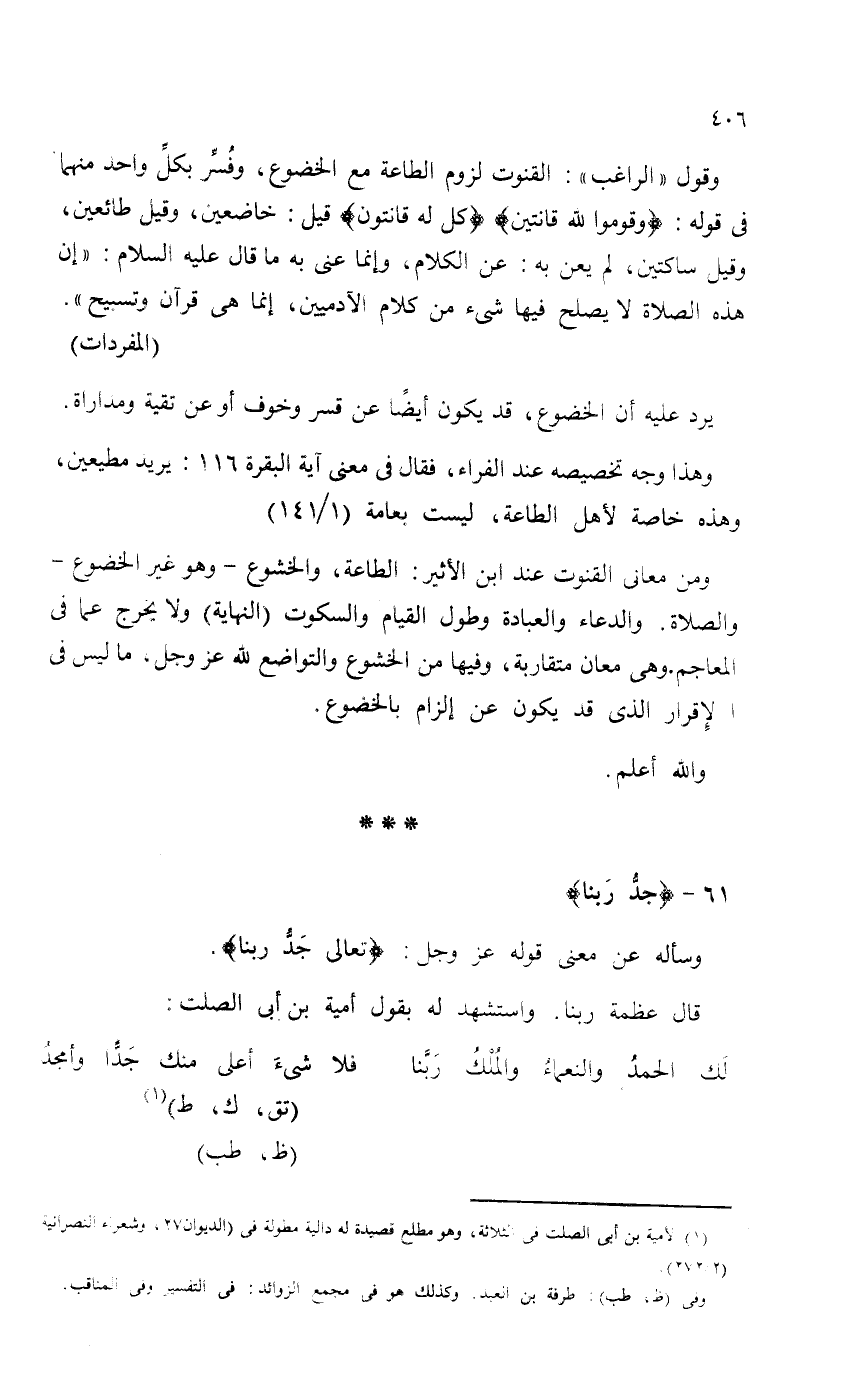 ٤٠٦
وقول «الراغب» : القنوت لزوم الطاعة مع الخضوع، وفُسِّر بكلِّ واحد منهما
فى قوله : ﴿وقوموا لله قانتين﴾ ﴿كل له قانتون﴾ قيل : خاضعين، وقيل طائعين،
وقيل ساكتين، لم يعن به : عن الكلام، وإنما عنى به ما قال عليه السلام : «إن
هذه الصلاة لا يصلح فيها شىء من كلام الآدميين، إنما هى قرآن وتسبيح».
(المفردات)
يرد عليه أن الخضوع، قد يكون أيضًا عن قسر وخوف أو عن تقية ومداراة.
وهذا وجه تخصيصه عند الفراء، فقال فى معنى آية البقرة ١١٦ : يريد مطيعين،
وهذه خاصة لأهل الطاعة، ليست بعامة (١٤١/١)
ومن معانى القنوت عند ابن الأثير : الطاعة، والخشوع – وهو غير الخضوع –
والصلاة. والدعاء والعبادة وطول القيام والسكوت (النهاية) ولا يخرج عما فى
المعاجم.وهى معان متقاربة، وفيها من الخشوع والتواضع لله عز وجل، ما ليس فى
الإقرار الذى قد يكون عن إلزام بالخضوع.
والله أعلم.
***
٦١ – ﴿جدُّ رَبنا﴾
وسأله عن معنى قوله عز وجل : ﴿تعالى جَدُّ ربنا﴾.
قال عظمة ربنا. واستشهد له بقول أمية بن أبى الصلت :
لَك الحمدُ والنعماءُ والمُلْكُ رَبَّنا فلا شىءَ أعلى منك جَدًّا وأمجدُ
(تق، ك، ط)(١)
(ظ، طب)
(١) لأمية بن أبى الصلت فى الثلاثة، وهو مطلع قصيدة له دالية مطولة فى (الديوان٢٧، وشعراء النصرانية
وفى (ظ، طب) : طرفة بن العبد. وكذلك هو فى مجمع الزوائد : فى التفسير وفى المناقب.